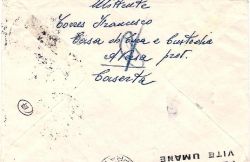 Mittente
Torres Francesco
Casa di Cura e Custodia
Aversa prov.
Caserta
VITE UMANE